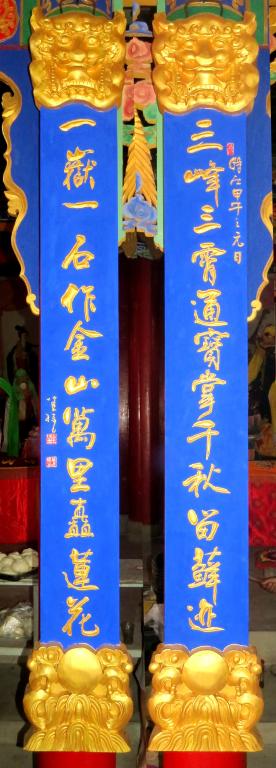 三峰三霄通寶掌千秋留蘚迹
時在甲午
一嶽一石作金山萬里矗蓮花